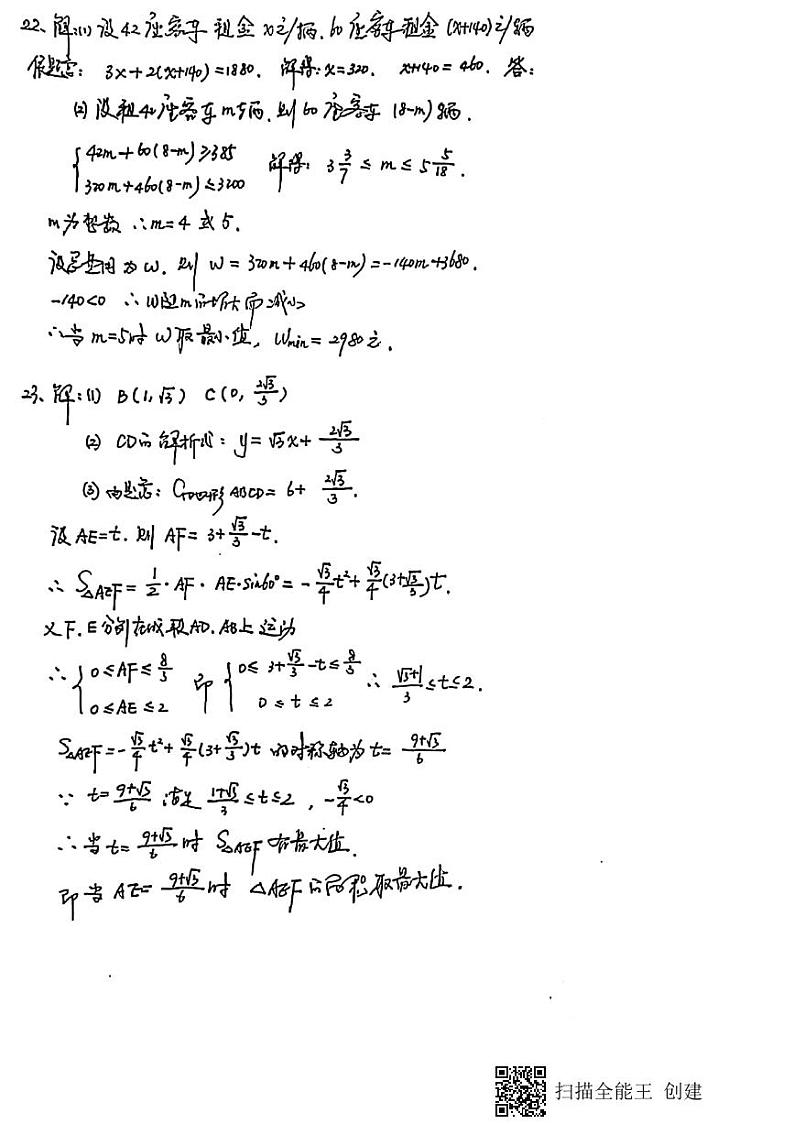 22、解:(1) 设42座客车租金x元/辆. 60座客车租金(x+140)元/辆
依题意: 3x+2(x+140)=1880. 解得: x=320. x+140=460. 答:
(2) 设租42座客车m辆. 则60座客车(8-m)辆.
{42m+60(8-m)≥385
320m+460(8-m)≤3200 解得: 3 3/7 ≤ m ≤ 5 5/18.
m为整数 ∴m=4或5.
设总费用为W. 则 W=320m+460(8-m)=-140m+3680.
-140<0 ∴W随m的增大而减小
∴当m=5时W取最小值, Wmin=2980元.
23、解:(1) B(1,√3) C(0, 2√3/3)
(2) CD的解析式: y=√3x+2√3/3
(3) 由题意: C四边形ABCD=6+2√3/3.
设AE=t. 则AF=3+√3/3-t.
∴ S△AEF=1/2·AF·AE·sin60°=-√3/4t²+√3/4(3+√3/3)t.
又F、E分别在线段AD、AB上运动
∴ {0≤AF≤8/3 0≤AE≤2 即 {0≤3+√3/3-t≤8/3 0≤t≤2 ∴ (√3+1)/3≤t≤2.
S△AEF=-√3/4t²+√3/4(3+√3/3)t的对称轴为t=(9+√3)/6
∵ t=(9+√3)/6满足(1+√3)/3≤t≤2, -√3/4<0
∴当t=(9+√3)/6时 S△AEF有最大值.
即当AE=(9+√3)/6时 △AEF的面积取最大值.
扫描全能王 创建